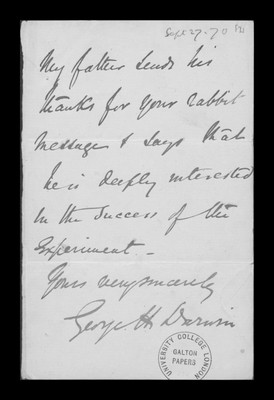 Sept 27. 70
My father sends his
thanks for your rabbit
message & says that
he is deeply interested
in the success of the
experiment –
Yours very sincerely
George H Darwin
UNIVERSITY COLLEGE LONDON
GALTON
PAPERS